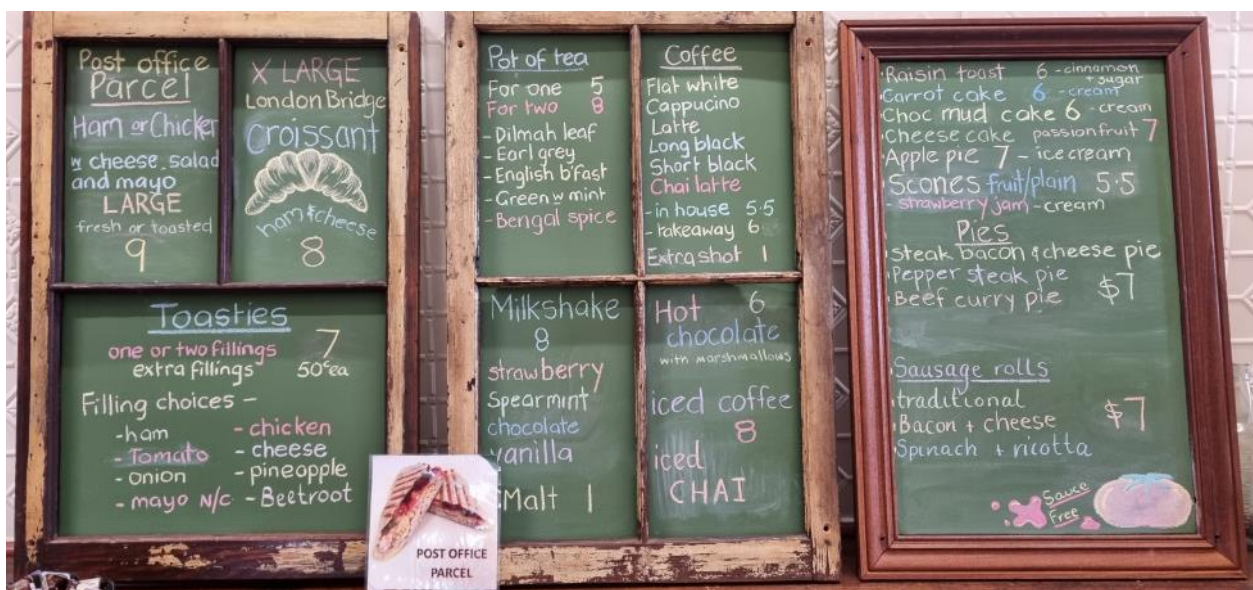 Post office
Parcel
Ham or Chicken
w cheese, salad
and mayo
LARGE
fresh or toasted
9
X LARGE
London Bridge
Croissant
ham & cheese
8
Toasties
one or two fillings 7
extra fillings 50c ea
Filling choices –
- ham
- Tomato
- onion
- mayo N/C
- chicken
- cheese
- pineopple
- Beetroot
POST OFFICE
PARCEL
Pot of tea
For one 5
For two 8
- Dilmah leaf
- Earl grey
- English b'fast
- Green w mint
- Bengal spice
Coffee
Flat white
Cappucino
Latte
Long black
Short black
Chai latte
- in house 5.5
- takeaway 6
Extra shot 1
Milkshake
8
strawberry
Spearmint
chocolate
vanilla
Malt 1
Hot 6
chocolate
with marshmallows
iced coffee
8
iced
CHAI
Raisin toast 6 - cinnamon
+ sugar
Carrot cake 6 - cream
Choc mud cake 6 - cream
Cheese cake passionfruit 7
Apple pie 7 - ice cream
Scones fruit/plain 5.5
- strawberry jam - cream
Pies
Steak bacon & cheese pie
Pepper steak pie $7
Beef curry pie
Sausage rolls
traditional
Bacon + cheese $7
Spinach + ricotta
Sauce
Free